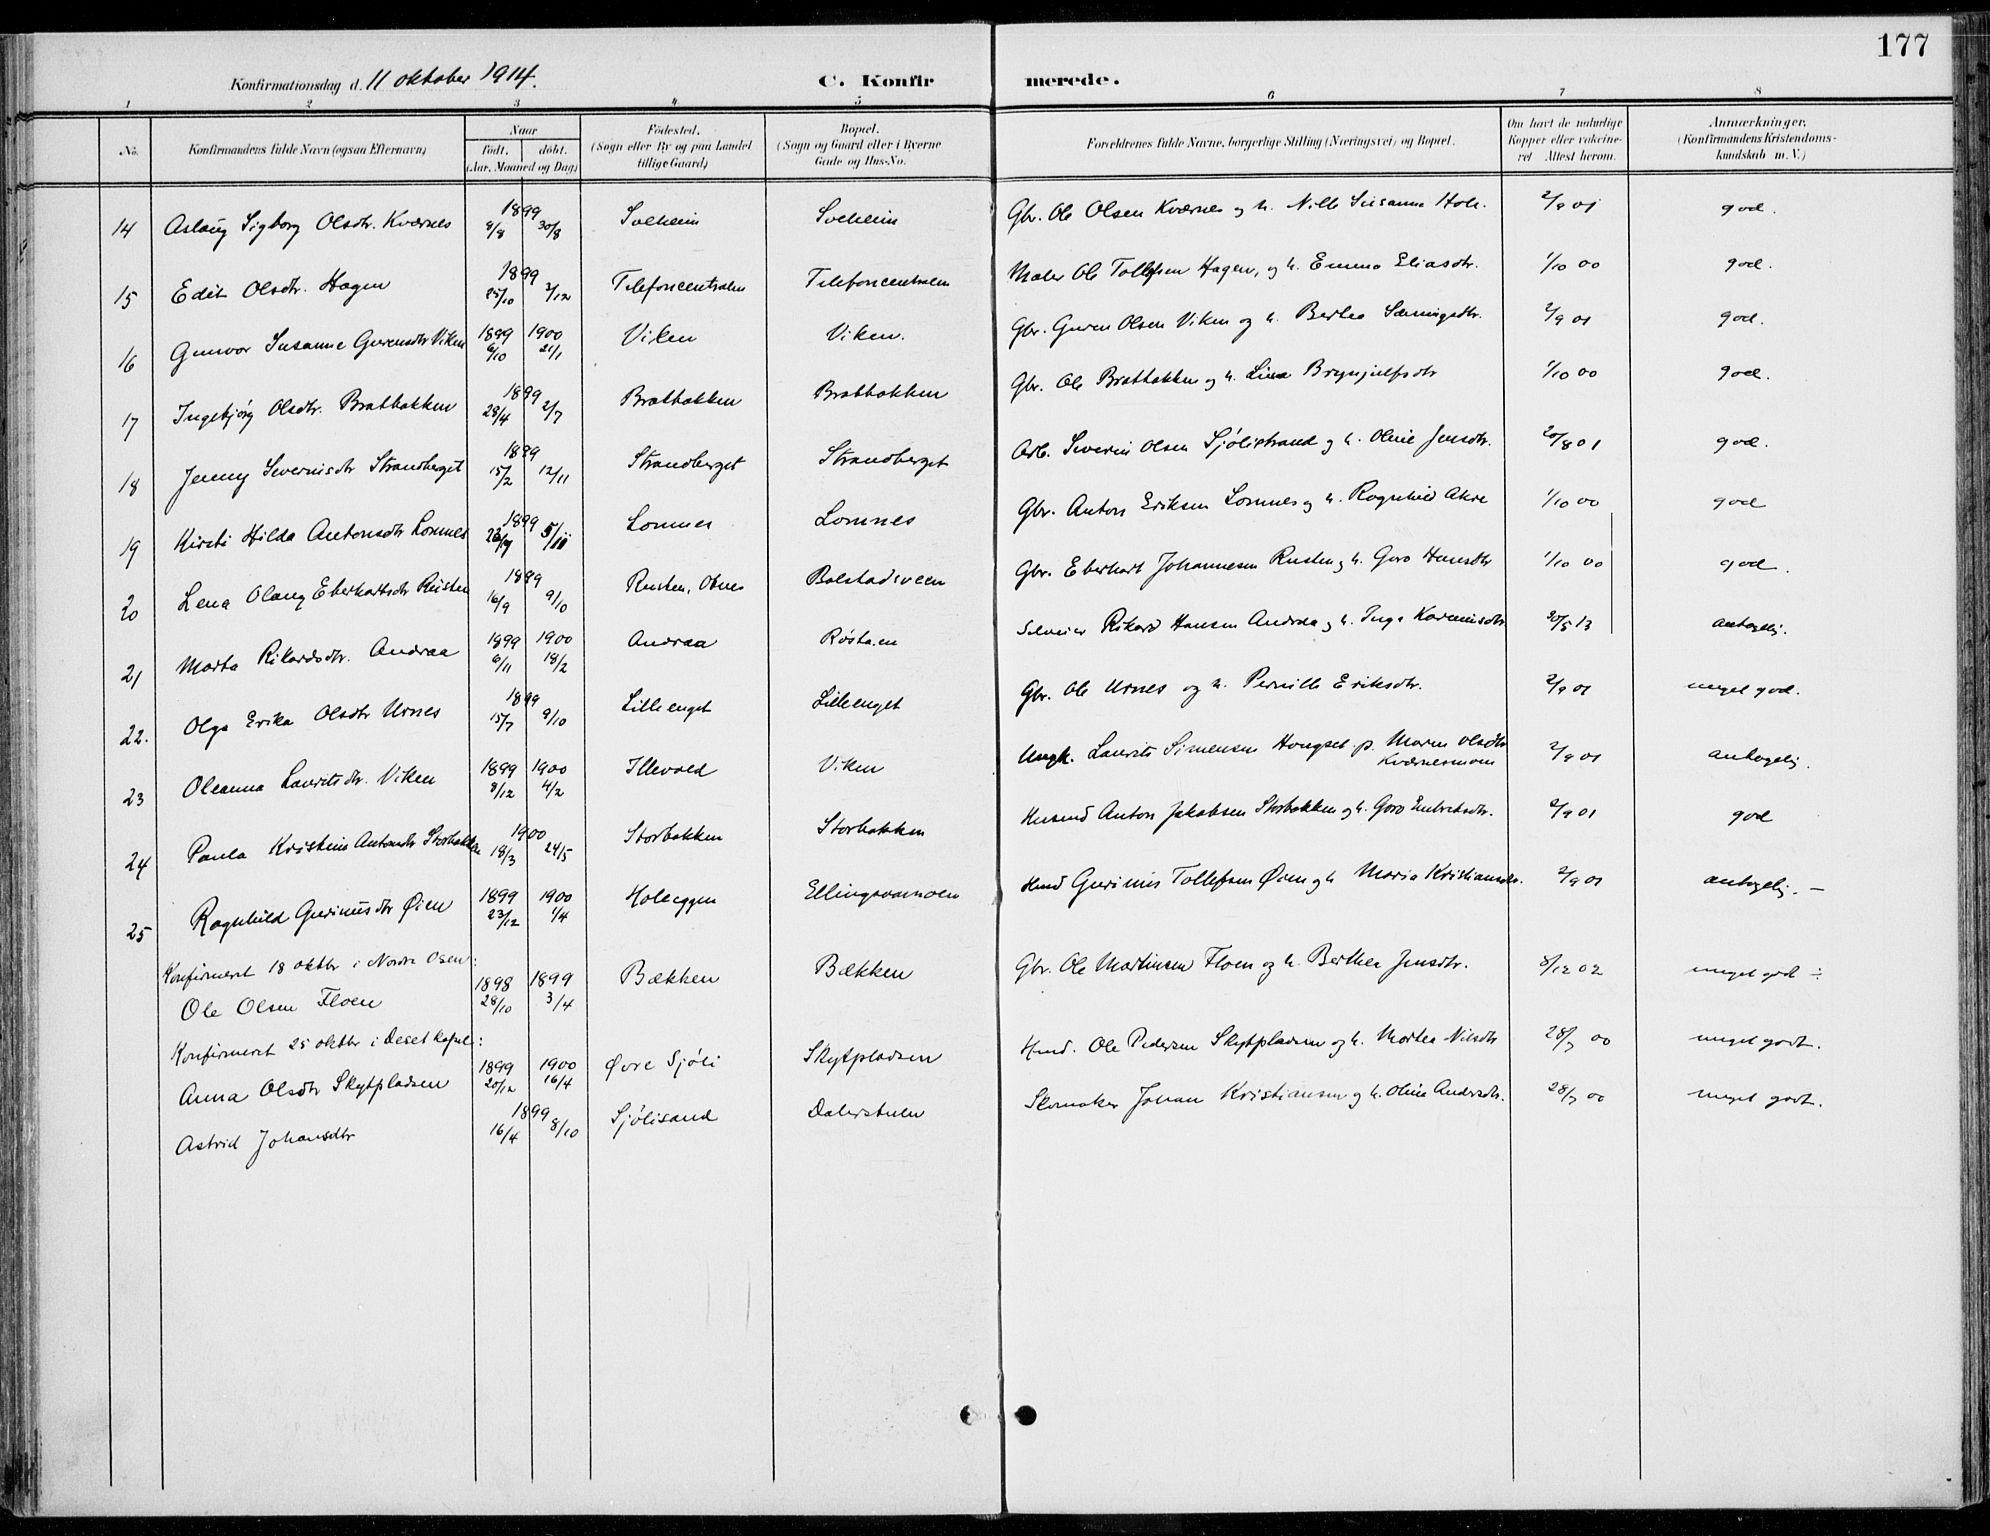 177
Konfirmationsdag d. 11 oktober 1914.
C. Konfirmerede.
1 2 3 4 5 6 7 8
No. Konfirmandens fulde Navn (ogsaa Efternavn) Naar födt. döbt. (Aar, Maaned og Dag) Födested. (Sogn eller By og paa Landet tillige Gaard) Bopæl. (Sogn og Gaard eller i Byerne Gade og Hus-No. Forældrenes fulde Navne, borgerlige Stilling (Næringsvei) og Bopæl. Om havt de naturlige Kopper eller vakcineret Attest herom. Anmærkninger. (Konfirmandens Kristendomskundskab m. V.)
14 Aslaug Sigborg Olsdtr. Kværnes 1899 8/8 30/8 Solheim Solheim Gbr. Ole Olsen Kværnes og h. Nille Susanne Hole. 2/9 01 god.
15 Edit Olsdtr. Hagen 1899 25/10 2/12 Telefoncentralen Telefoncentralen Maler Ole Tollefsen Hagen, og h. Emma Eliasdtr. 1/10 00 god.
16 Gunvor Susanne Gurensdtr Viken 1899 6/10 1900 21/1 Viken Viken. Gbr. Guren Olsen Viken og h. Berte Sæmingsdtr. 2/9 01 god.
17 Ingebjörg Olsdtr. Bratbakken 1899 28/4 2/7 Bratbakken Bratbakken Gbr. Ole Bratbakken og h. Lina Brynjulfsdtr 1/10 00 god.
18 Jenny Severinsdtr Strandberget 1899 15/2 12/11 Strandberget Strandberget Arb. Severin Olsen Sjölistrand og h. Oline Jensdtr. 20/8 01 god.
19 Kirsti Hilda Antonsdtr Lomnes 1899 5/11 Lomnes Lomnes Gbr. Anton Eriksen Lomnes og h. Ragnhild Akre 1/10 00 god
20 Lena Olaug Eberhartsdtr Rusten 1899 16/9 9/10 Rusten, Otnes Bolstadsveen Gbr. Eberhart Johannesen Rusten og h. Goro Hansdtr 1/10 00 god.
21 Marta Rikardsdtr. Andraa 1899 6/11 1900 18/2 Andraa Røstaen Selveier Rikard Hansen Andraa og h. Inga Kareniusdtr 20/5 13 antagelig.
22. Olga Erika Olsdtr Urnes 1899 15/7 9/10 Lilleenget Lilleenget Gbr. Ole Urnes og h. Pernille Eriksdtr. 2/9 01 meget god.
23 Oleanna Lauritsdtr. Viken 1899 8/12 1900 4/2 Illevold Viken Ungk. Laurits Simensen Hongset. p. Maren Olsdtr Kværnesmoen 2/9 01 antagelig.
24 Paula Kristine Antonsdtr Storbakken 1900 18/3 24/5 Storbakken Storbakken Husmd Anton Jakobsen Storbakken og h. Goro Embretsdtr. 2/9 01 god
25 Ragnhild Gurinusdtr Øien 1899 23/12 1900 1/4 Holeggen Hmd Gurinus Tollefsen Øien og h. Maria Kristiansdtr. 2/9 01 antagelig. –
Konfirmeret 18 oktbr i Nordre Osen:
Ole Olsen Floen 1898 28/10 1899 3/4 Bækken Bækken Gbr. Ole Martinsen Floen og h. Berthea Jensdtr. 8/12 02 meget god
Konfirmeret 25 oktbr i Deset kapel:
Anna Olsdtr Skytpladsen 1899 20/12 1900 16/4 Øvre Sjöli Skytpladsen Hmd. Ole Pedersen Skytpladsen og h. Martea Nilsdtr 28/7 00 meget godt.
Astrid Johansdtr 1899 16/4 8/10 Sjölisand Skomaker Johan Kristiansen og h. Oline Andersdtr. 28/7 00 meget godt.